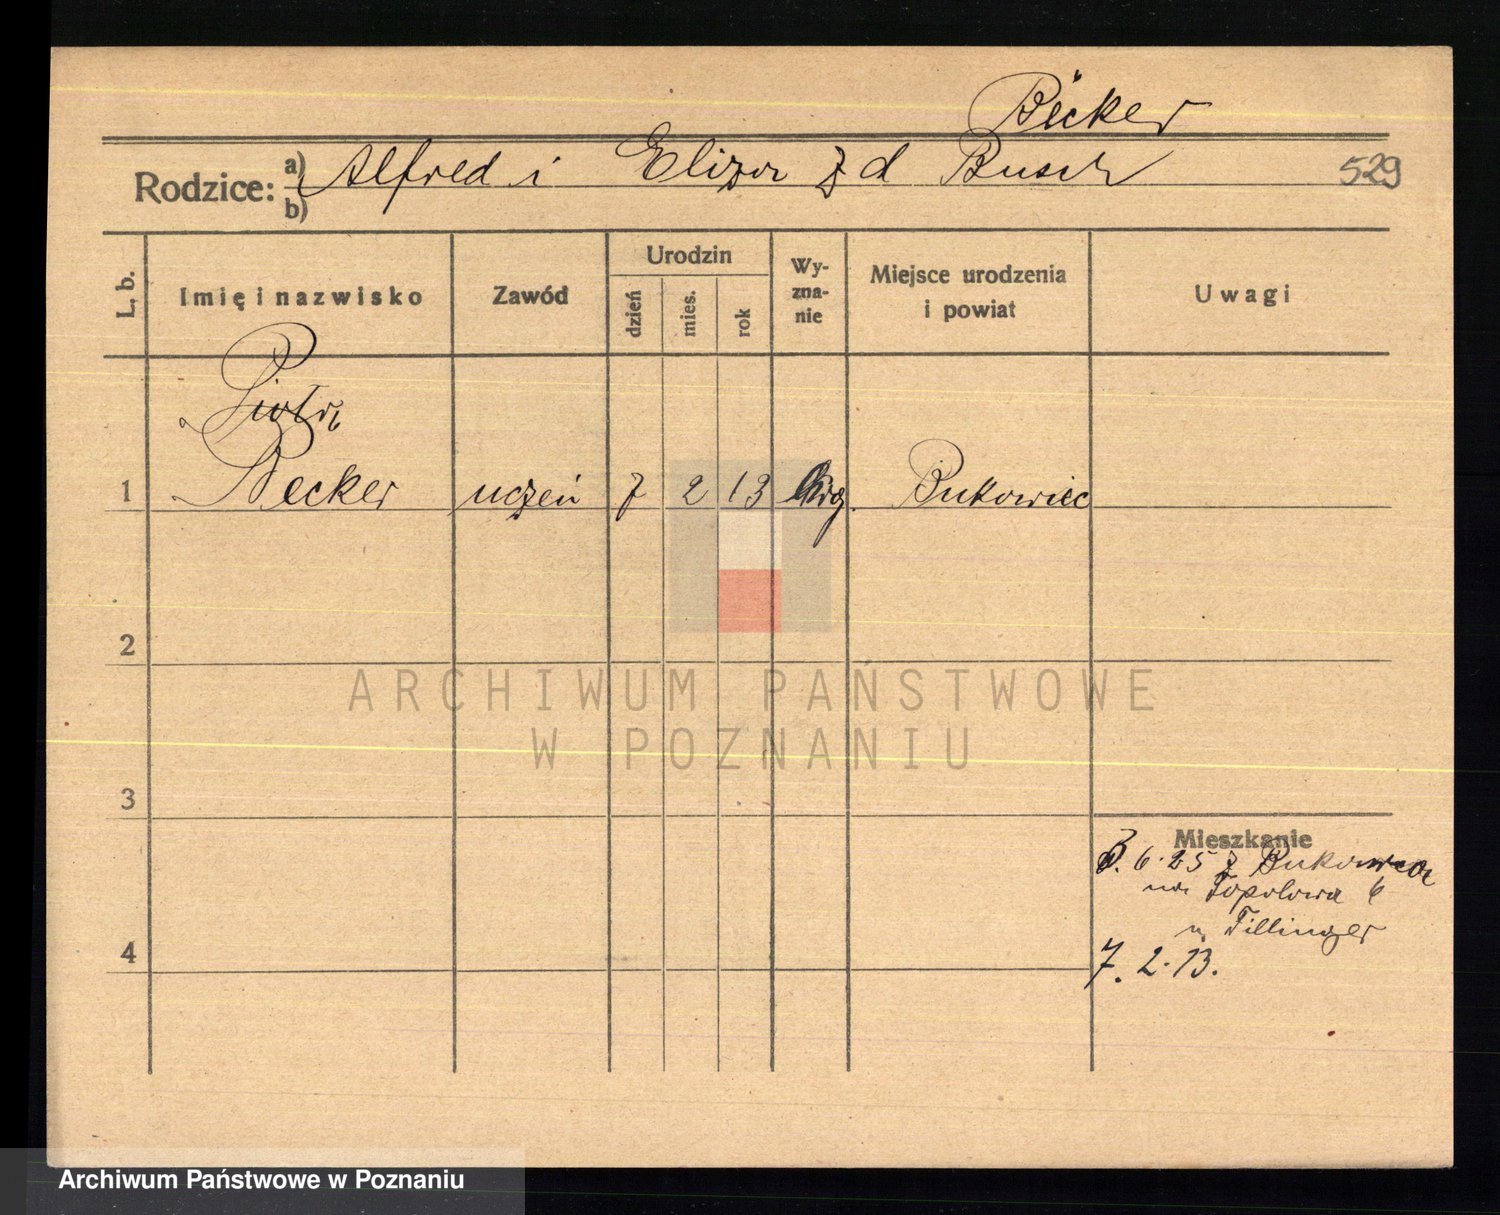 Becker
Rodzice: a) Alfred i Eliza z d Busch
b)
529
L. b.
Imię i nazwisko
Zawód
Urodzin
dzień
mies.
rok
Wy-
zna-
nie
Miejsce urodzenia
i powiat
Uwagi
Piotr
1 Becker uczeń 7 2 13 Bukowiec
2
ARCHIWUM PAŃSTWOWE
W POZNANIU
3
Mieszkanie
6. 25 z Bukowca
na Topolowa 6
u Tillinger
4
7. 2. 13.
Archiwum Państwowe w Poznaniu